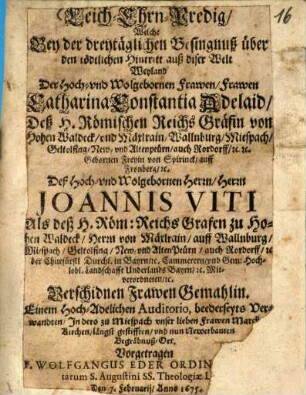 16
Leich-Ehrn-Predig/
Welche
Bey der dreytäglichen Besingnuß über
den tödtlichen Hintritt auß diser Welt
Weyland
Der Hoch- vnd Wolgebornen Frawen/ Frawen
Catharina Constantia Adelaid/
Deß H. Römischen Reichs Gräfin von
Hohen Waldeck/ vnd Märlrain/ Wallnburg/ Miespach/
Geltolfing/ New- vnd Altenpeürn/ auch Rordorff/ ꝛc. ꝛc.
Gebornen Freyin von Spirinck/ auff
Fronberg/ ꝛc.
Deß Hoch- vnd Wolgebornen Herrn/ Herrn
JOANNIS VITI
Als deß H. Röm: Reichs Grafen zu Ho-
hen Waldeck/ Herrn von Märlrain/ auff Wallnburg/
Miespach/ Geltolfing/ New- vnd AltenPeürn/ auch Rordorff/ ꝛc.
der Churfürstl. Durchl. in Bayrn/ ꝛc. Cammerern/ vnd Gem: Hoch-
lobl. Landschafft Underlands Bayrn/ ꝛc. Mit-
verordneten/ ꝛc.
Verschidnen Frawen Gemahlin.
Einem Hoch-Adelichen Auditorio, beederseyts Ver-
wandten/ In dero zu Miespach vnser lieben Frawen Marck
Kirchen/ längst gestifften/ vnd nun Newerbauten
Begräbnuß-Ort.
Vorgetragen
P. WOLFGANGUS EDER ORDIN
tarum S. Augustini SS. Theologiæ L
Den 7. Februarij/ Anno 1675.